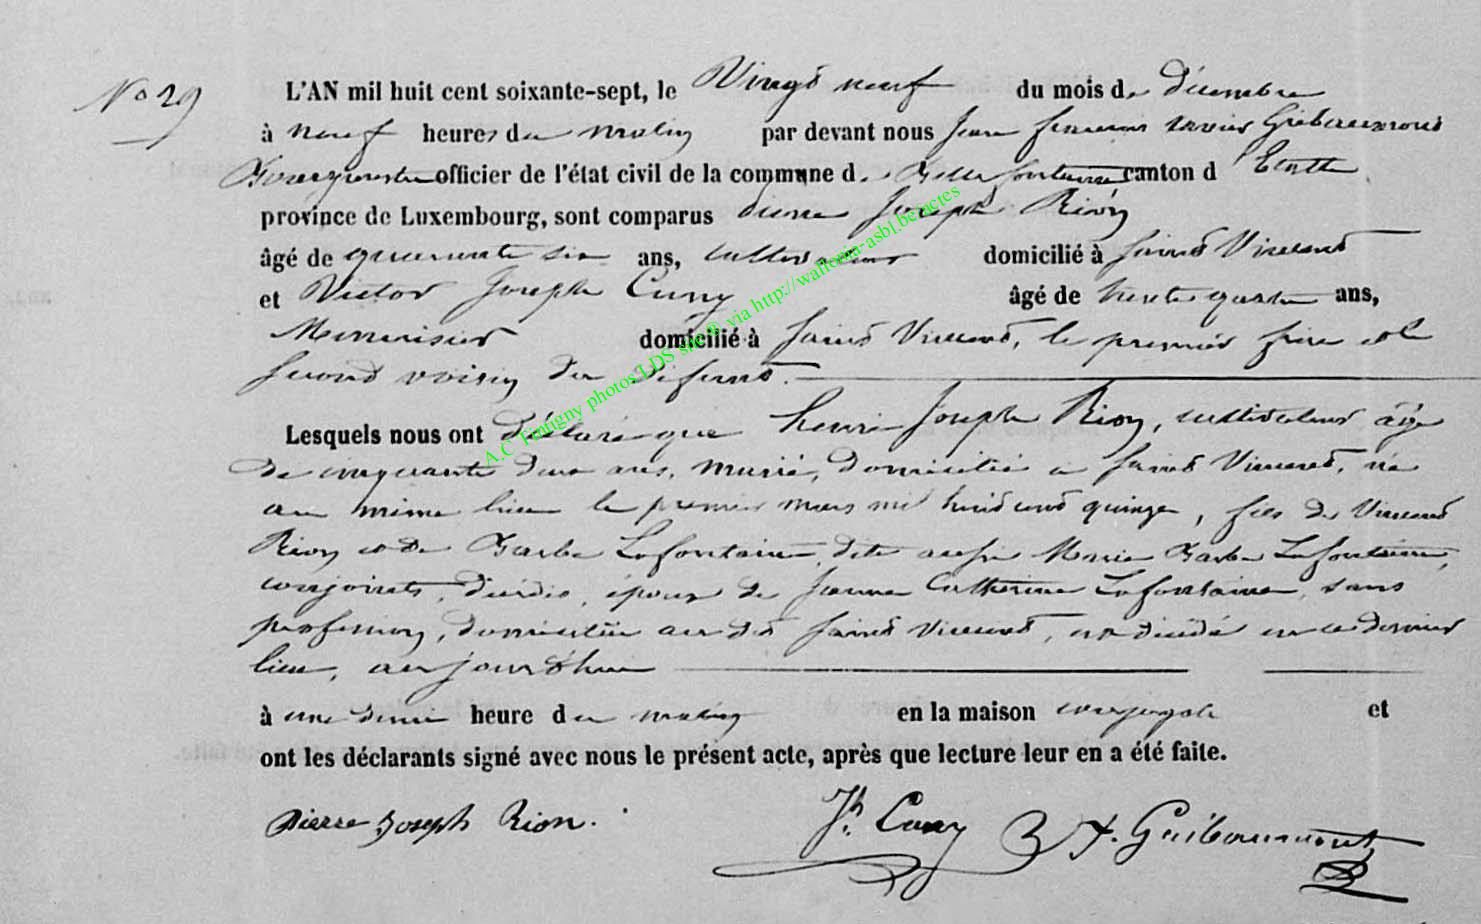 No 29
L'AN mil huit cent soixante-sept, le Vingt neuf du mois de décembre
à neuf heures du matin par devant nous Jean françois xavier Guibeaumont
Bourgmestre officier de l'état civil de la commune de Bellefontaine canton d'Etalle
province de Luxembourg, sont comparus Pierre Joseph Rion
âgé de quarante six ans, cultivateur domicilié à Saint Vincent
et Victor Joseph Cuny âgé de trente quatre ans,
Menuisier domicilié à Saint Vincent, le premier frère et le
second voisin du défunt.
Lesquels nous ont déclaré que henri Joseph Rion, cultivateur âgé
de cinquante deux ans, marié, domicilié à Saint Vincent, né
au même lieu le premier mars mil huit cent quinze, fils de Vincent
Rion et de Barbe Lafontaine, dite aussi Marie Barbe Lafontaine,
conjoints, décédés, époux de Jeanne Catherine Lafontaine, sans
profession, domiciliée au dit Saint Vincent, est décédé en ce dernier
lieu, aujourd'hui
à une demie heure du matin en la maison conjugale et
ont les déclarants signé avec nous le présent acte, après que lecture leur en a été faite.
Pierre Joseph Rion. Jh. Cuny Guibeaumont
A.C Tintigny photos LDS site® via http://wallonia-asbl.be/actes